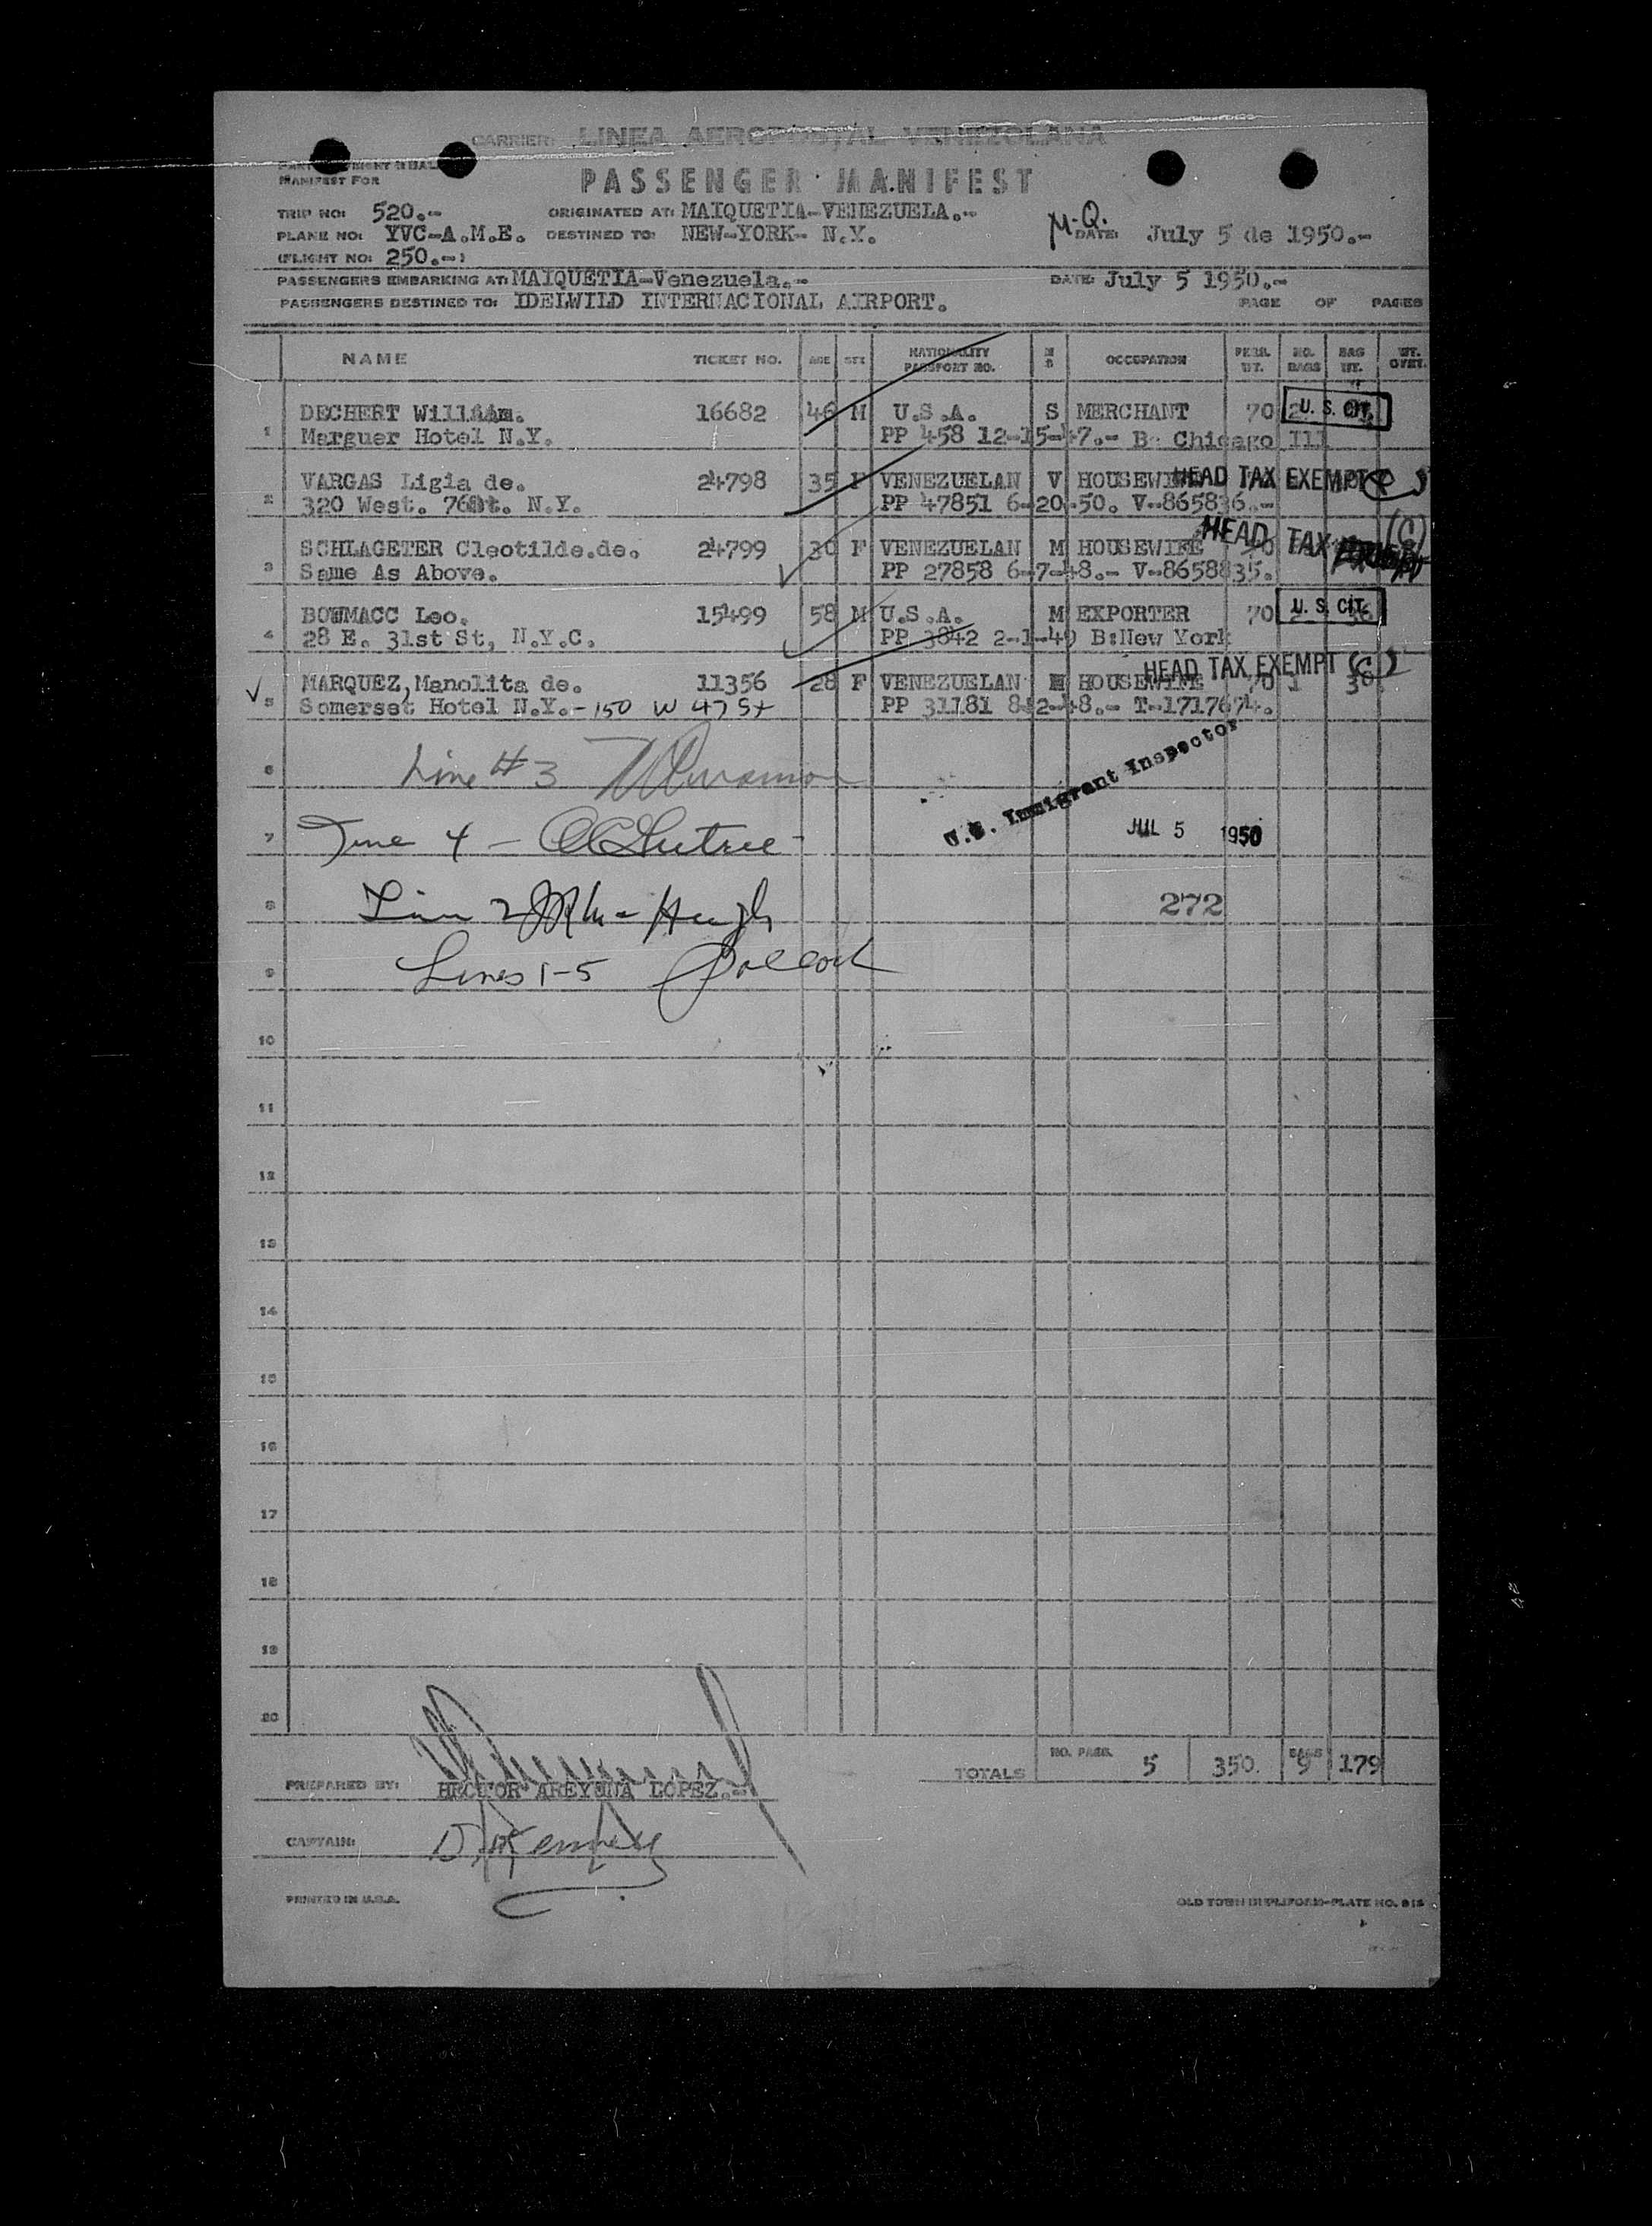 CARRIER: LINEA AEROPOSTAL VENEZOLANA
MANIFEST FOR
PASSENGER MANIFEST
TRIP NO: 520.- ORIGINATED AT: MAIQUETIA-VENEZUELA.-
PLANE NO: YVC-A.M.E. DESTINED TO: NEW-YORK- N.Y. M-Q. DATE: July 5 de 1950.-
(FLIGHT NO: 250.-)
PASSENGERS EMBARKING AT: MAIQUETIA-Venezuela.- DATE: July 5 1950.-
PASSENGERS DESTINED TO: IDELWILD INTERNACIONAL AIRPORT. PAGE OF PAGES
NAME TICKET NO. AGE SEX NATIONALITY PASSPORT NO. M S OCCUPATION PERS. WT. NO. BAGS BAG WT. WT. OVER.
DECHERT William. 16682 46 M U.S.A. S MERCHANT 70 2 U. S. CIT.
1 Marguer Hotel N.Y. PP 458 12-15-47.- B: Chicago Ill
VARGAS Ligia de. 24798 35 F VENEZUELAN V HOUSEWIFE HEAD TAX EXEMPT
2 320 West. 76St. N.Y. PP 47851 6-20-50. V-865836.-
SCHLAGETER Cleotilde.de. 24799 30 F VENEZUELAN M HOUSEWIFE 70 HEAD TAX EXEMPT (C)
3 Same As Above. PP 27858 6-7-48.- V-8658835.
BOWMACC Leo. 15499 58 M U.S.A. M EXPORTER 70 2 36 U. S. CIT.
4 28 E. 31st St, N.Y.C. PP 3842 2-1-49 B:New York
MARQUEZ, Manolita de. 11356 28 F VENEZUELAN M HOUSEWIFE 70 1 30 HEAD TAX EXEMPT (C)
5 Somerset Hotel N.Y.- 150 W 47 St PP 31181 8-2-48.- T-1717674.
6 Line #3
U.S. Immigrant Inspector
7 Line 4 -
JUL 5 1950
8 Line 2
272
9 Lines 1-5 Pollock
10
11
12
13
14
15
16
17
18
19
20
TOTALS NO. PASS. 5 350. BAGS 9 179
PREPARED BY: HECTOR AREYUNA LOPEZ.-
CAPTAIN:
PRINTED IN U.S.A. OLD TOWN DUPLIFORM-PLATE NO. 912